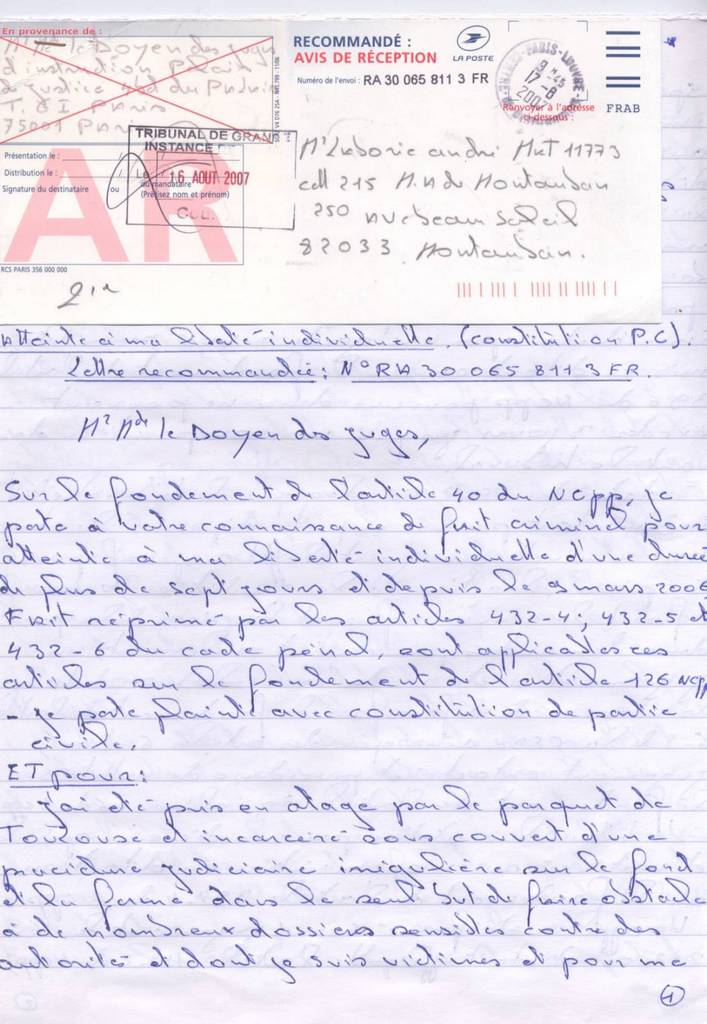 En provenance de :
le Doyen des juges
d'instruction Palais
de justice
T. G I PARIS
75001 PARIS
RECOMMANDÉ :
AVIS DE RÉCEPTION
LA POSTE
Numéro de l'envoi : RA 30 065 811 3 FR
17-8
2007
Renvoyer à l'adresse
ci-dessous :
FRAB
TRIBUNAL DE GRANDE
INSTANCE
Présentation le :
Distribution le :
16 AOUT 2007
Signature du destinataire ou du mandataire
(Précisez nom et prénom)
AR
RCS PARIS 356 000 000
Mr Laborie andré Mat 11773
cell 215 M.A de Montauban
250 AV beau soleil
82033 Montauban.
Atteinte à ma liberté individuelle. (constitution P.C).
Lettre recommandée: N° RA 30 065 811 3 FR.
Mr Md le Doyen des juges,
Sur le fondement de l'article 40 du NCPP, je
porte à votre connaissance de fait criminel pour
atteinte à ma liberté individuelle d'une durée
de plus de sept jours et depuis le 9 mars 2006
Fait réprimé par les articles 432-4; 432-5 et
432-6 du code pénal, sont applicables ces
articles sur le fondement de l'article 126 NCPP
- je porte plainte avec constitution de partie
civile.
ET pour:
J'ai été pris en otage par le parquet de
Toulouse et incarcéré sous couvert d'une
procédure judiciaire irrégulière sur le fond
et la forme dans le seul but de faire obstacle
à de nombreux dossiers sensibles contre des
autorités et dont je suis victimes et pour me
1